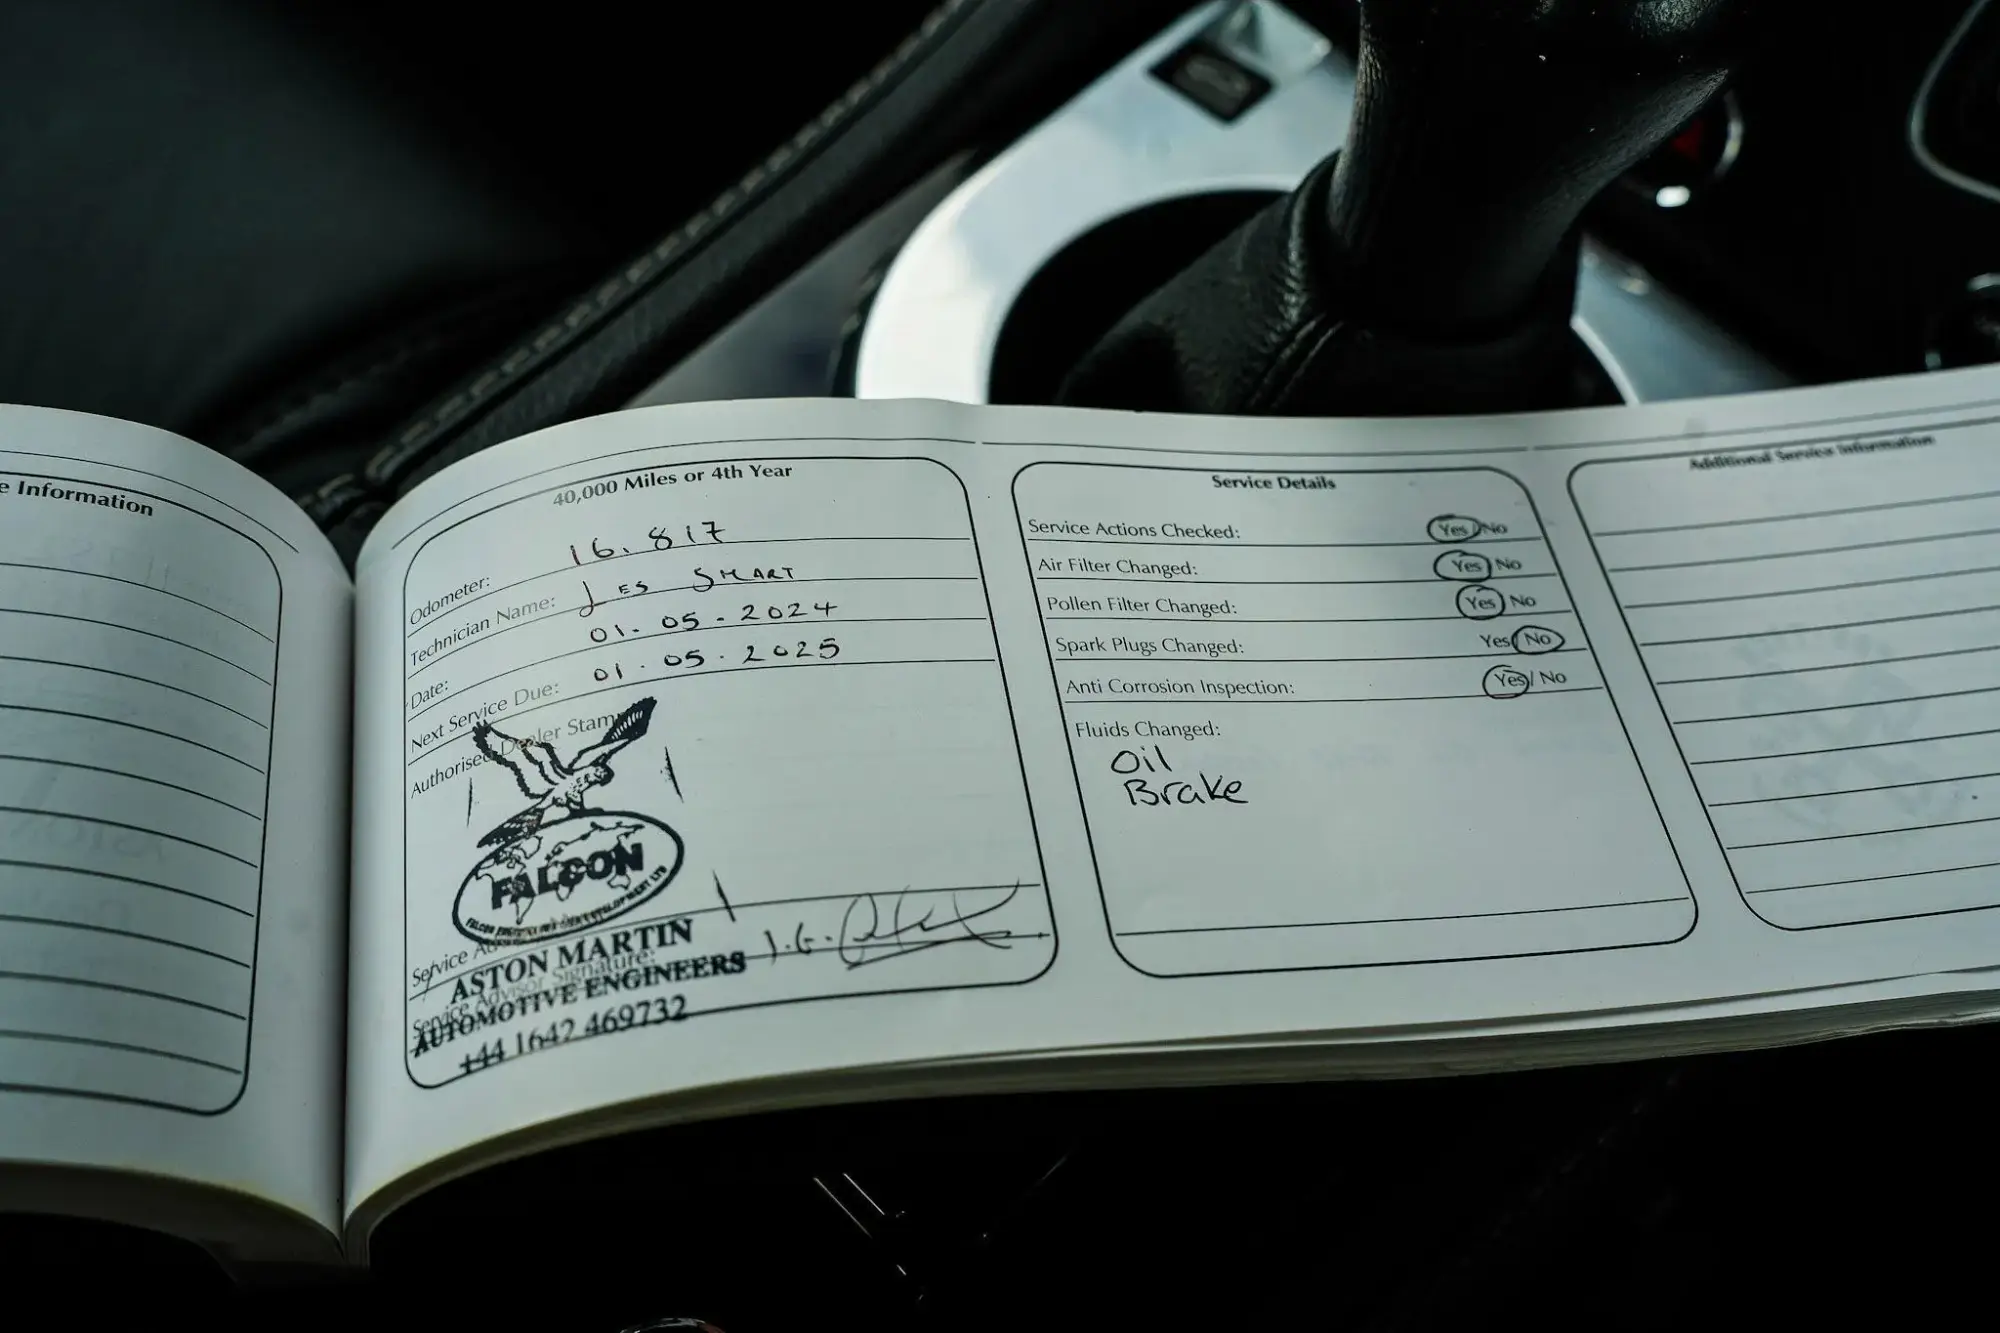 e Information
40,000 Miles or 4th Year
Odometer: 16.817
Technician Name: Les Smart
Date: 01.05.2024
Next Service Due: 01.05.2025
Authorised Dealer Stamp
FALCON
ASTON MARTIN
AUTOMOTIVE ENGINEERS
+44 1642 469732
Service Advisor Signature:
Service Details
Service Actions Checked: Yes / No
Air Filter Changed: Yes / No
Pollen Filter Changed: Yes / No
Spark Plugs Changed: Yes / No
Anti Corrosion Inspection: Yes / No
Fluids Changed:
Oil
Brake
Additional Service Information